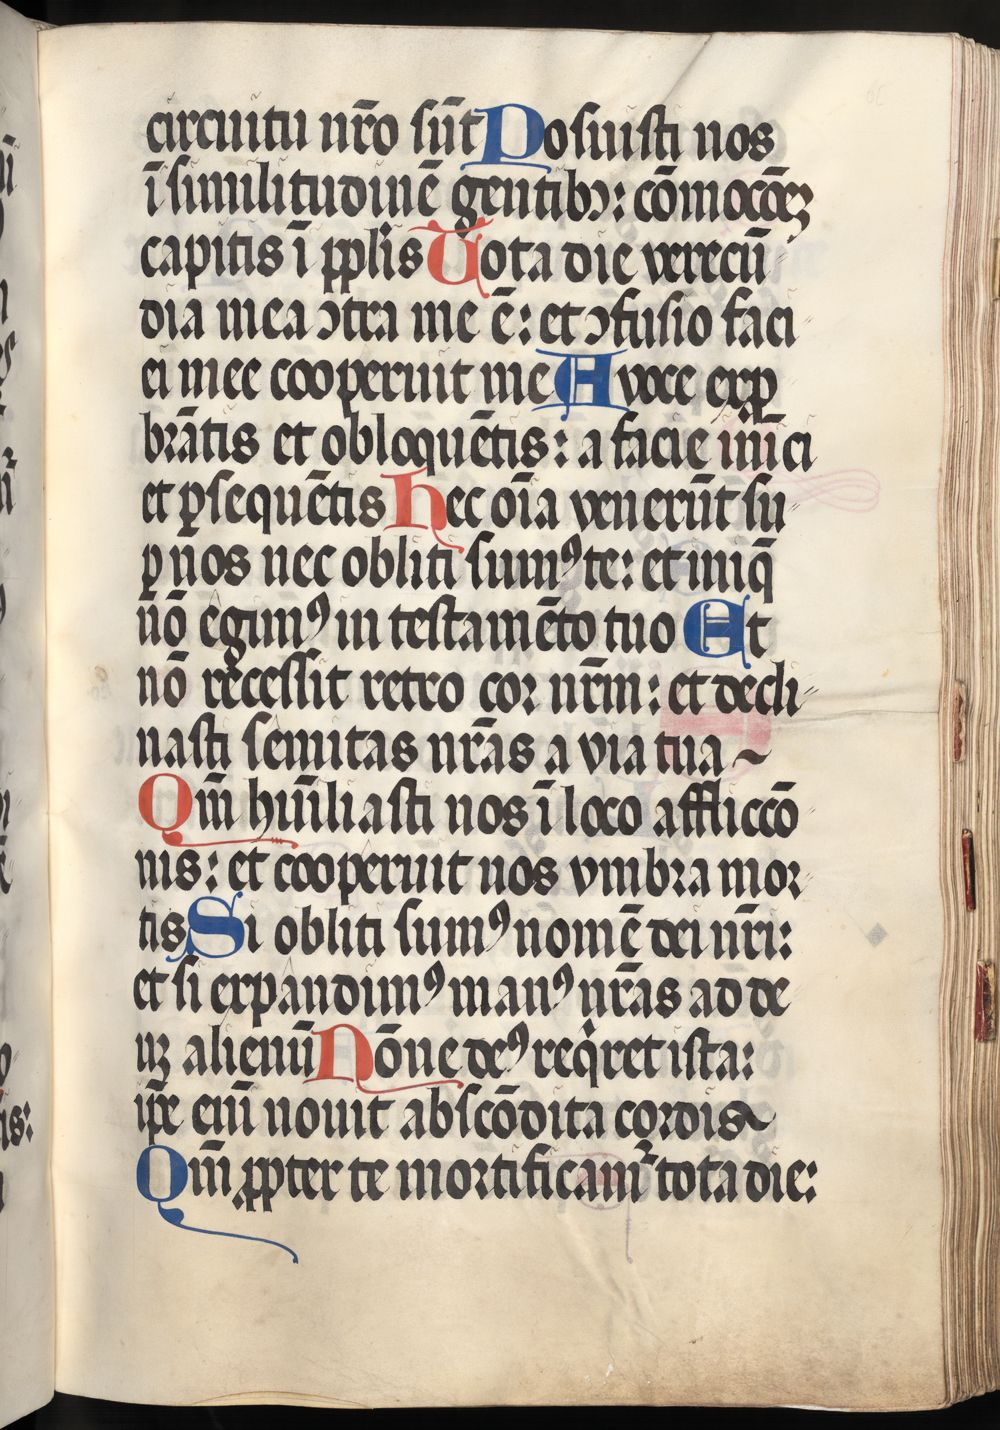 circuitu nr̄o sūt Posuisti nos
ī similitudinē gentibꝫ: cōmocōeꝫ
capitis ī pp̱lis Tota die verecū
dia mea ɔtra me ē: et ɔfusio faci
ei mee cooperuit me A voce exꝓ
brātis et obloquētis: a facie inīci
et ꝑsequētis Hec oīa venerūt su
ꝑ nos nec obliti sumꝰ te: et iniq̄
nō egimꝰ in testamēto tuo Et
nō recessit retro cor nr̄m: et decli
nasti semitas nr̄as a via tua ~
Qm̄ hūiliasti nos ī loco afflicco̅
nis: et cooperuit nos vmbra mor
tis Si obliti sumꝰ nomē dei nr̄i:
et si expandimꝰ manꝰ nr̄as ad de
uꝫ alienū Nōne deꝰ reqͥret ista:
ip̄e eni̅ nouit abscōdita cordis ~
Qm̄ ꝓpter te mortificamᷣ tota die: